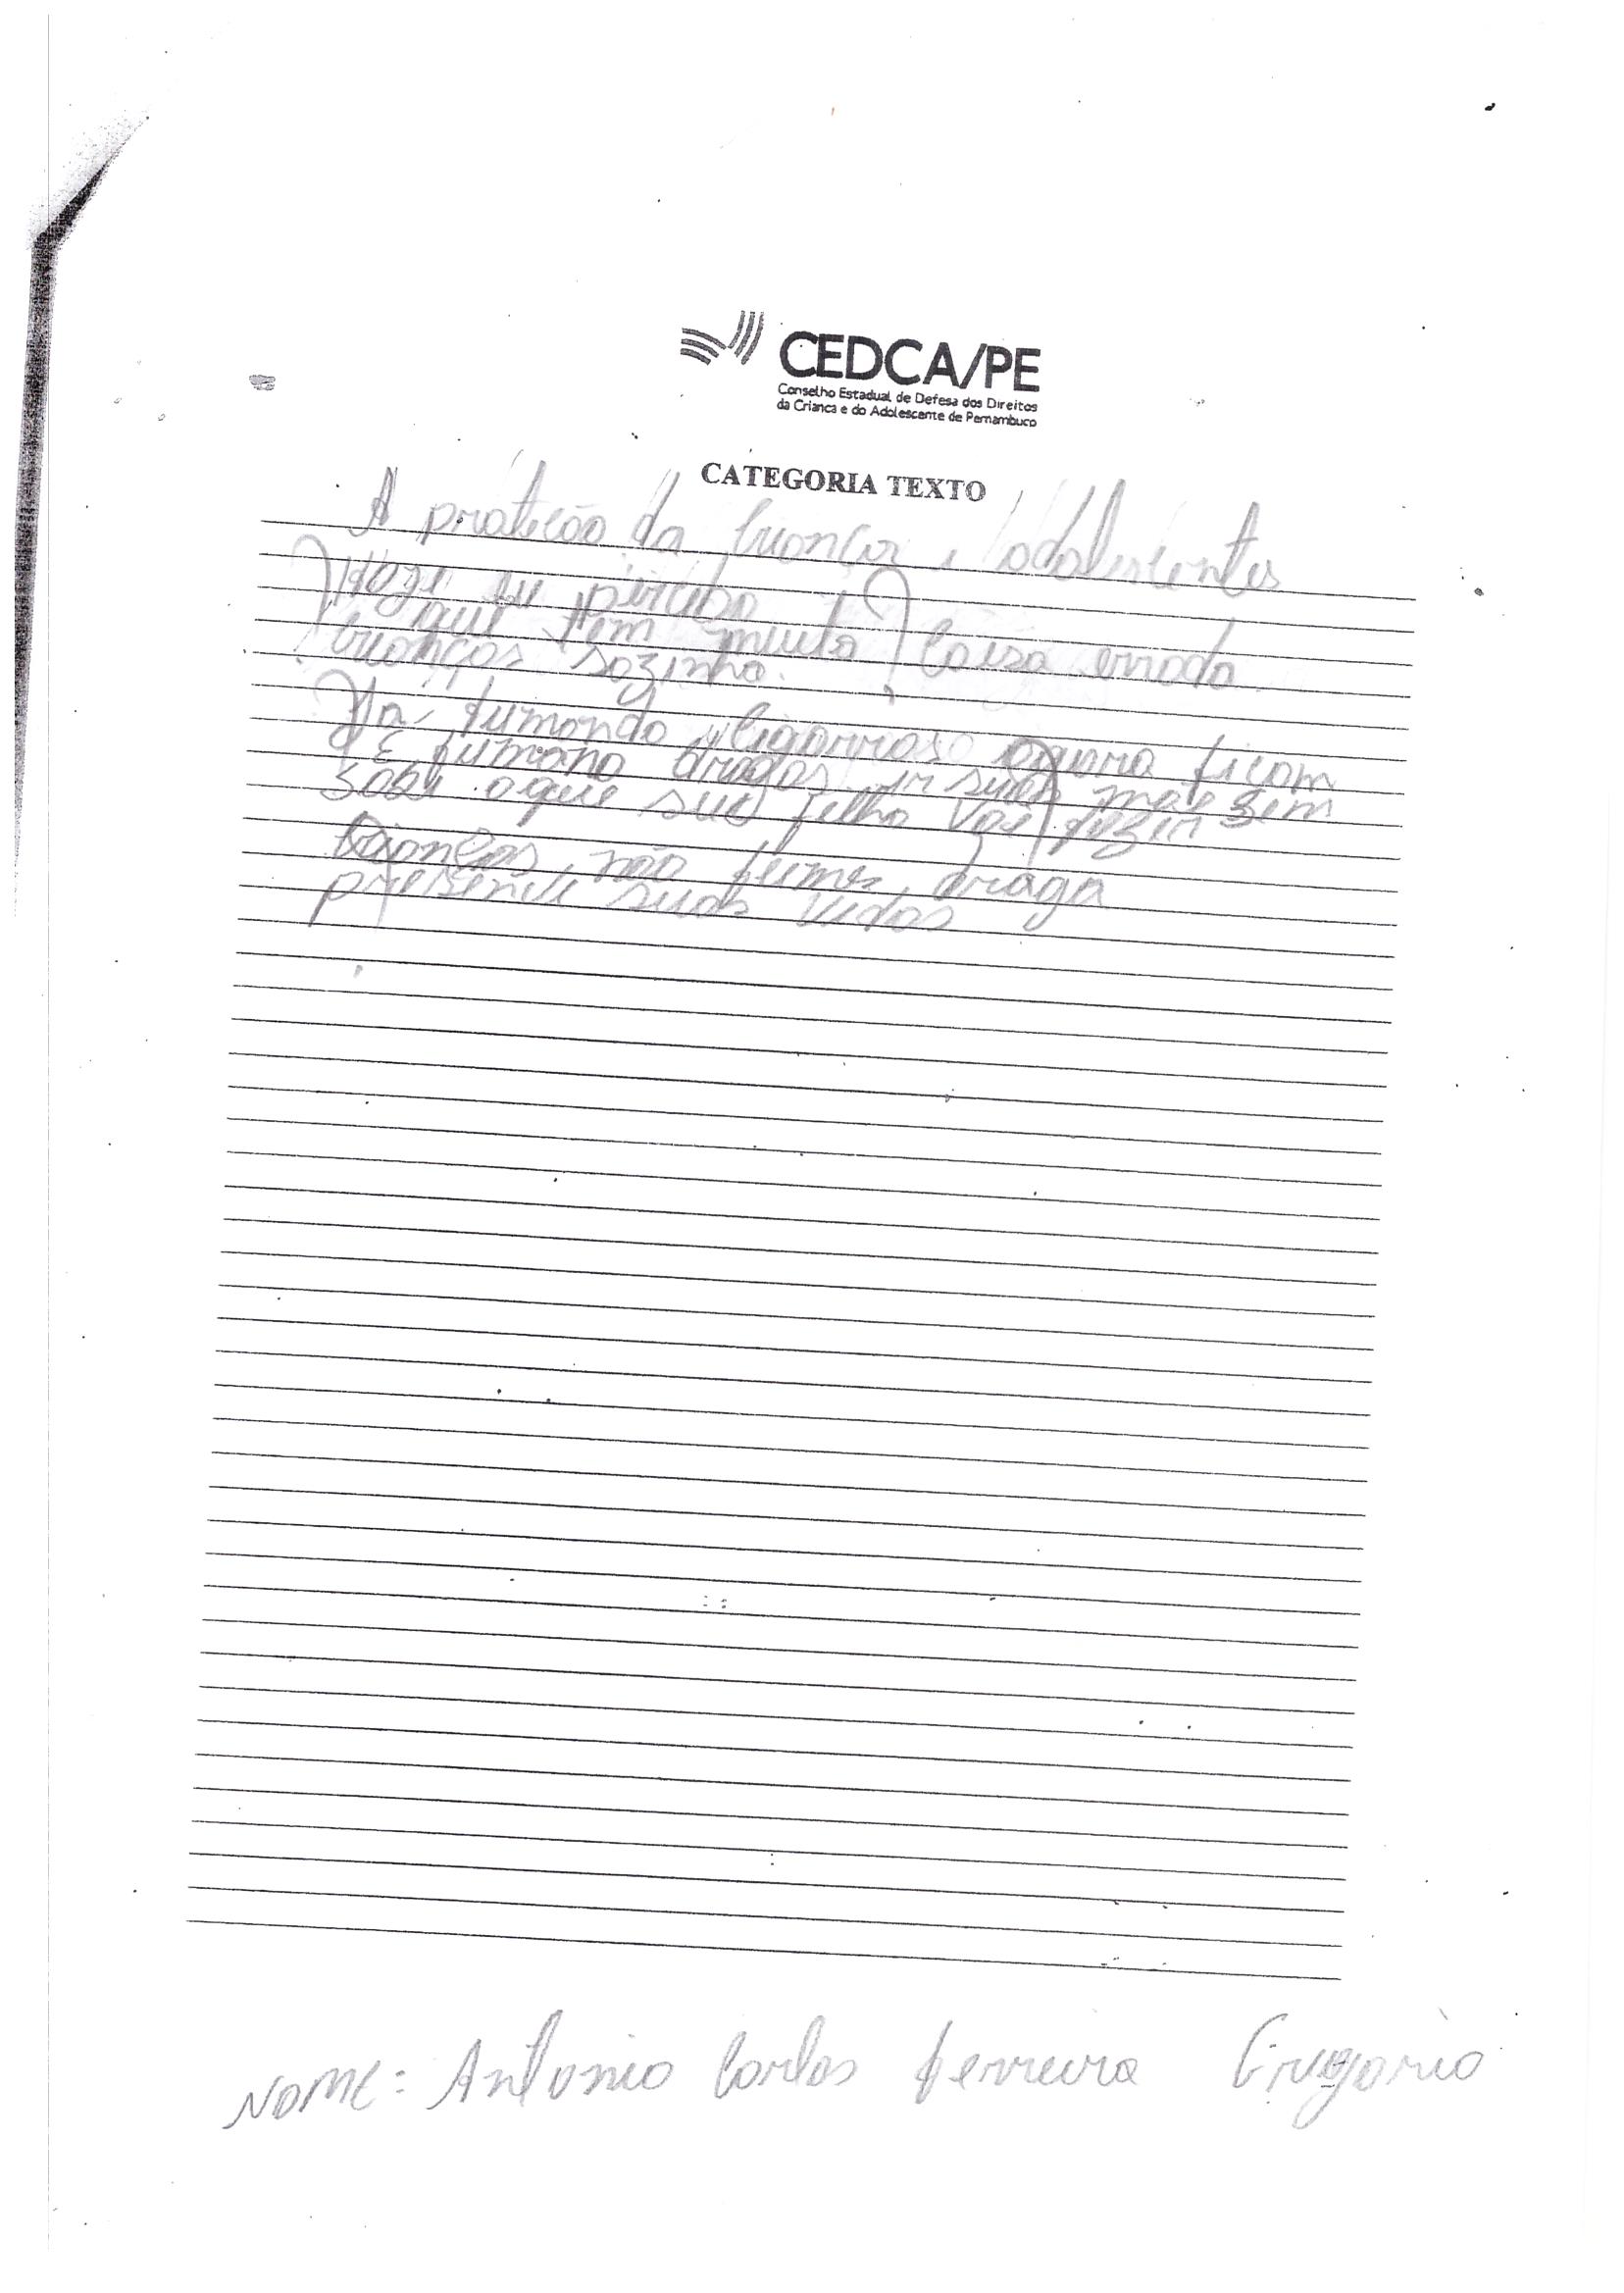 CEDCA/PE
Conselho Estadual de Defesa dos Direitos
da Criança e do Adolescente de Pernambuco
CATEGORIA TEXTO
A proteção da criança e adolescentes
Hoze eu percebo
que tem muita coisa errada
crianças sozinha.
Ja fumando cigarros agora ficam
E fumano drogas sua mãe sem
sabe oque seu filho vai fazer
Crianças não fumes droga
presenve suas vidas
NOME: Antonio Carlos Ferreira Gregorio